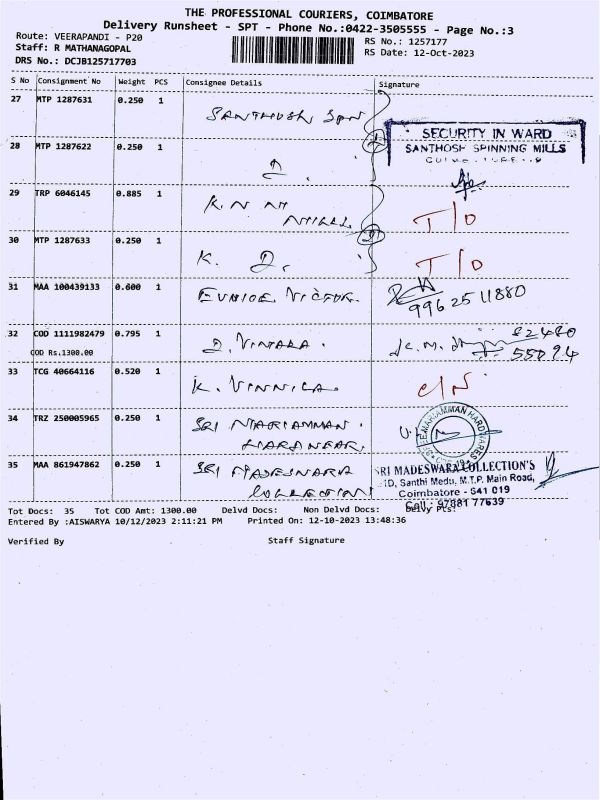 THE PROFESSIONAL COURIERS, COIMBATORE
Delivery Runsheet - SPT - Phone No.:0422-3505555 - Page No.:3
Route: VEERAPANDI - P20
RS No.: 1257177
Staff: R MATHANAGOPAL
RS Date: 12-Oct-2023
DRS No.: DCJB125717703
S No Consignment No Weight PCS Consignee Details Signature
27 MTP 1287631 0.250 1 SANTHOSH SPN
SECURITY IN WARD
28 MTP 1287622 0.250 1
SANTHOSH SPINNING MILLS
29 TRP 6046145 0.885 1 K.N
T/O
30 MTP 1287633 0.250 1 K. D.
T/O
31 MAA 100439133 0.600 1 EUNICE VICTOR.
99625 11880
32 COD 1111982479 0.795 1 D. VIMALA.
82480
COD Rs.1300.00
55094
33 TCG 40664116 0.520 1 K. VINNILA
C/N
34 TRZ 250005965 0.250 1 SRI MARIAMMAN
HARDWARE
SREE MARIAMMAN HARDWARES
35 MAA 861947862 0.250 1 SRI MADESWARA
COLLECTION
SRI MADESWARA COLLECTION'S
Santhi Medu, M.T.P. Main Road,
Coimbatore - 641 019
Cell : 97881 77639
Tot Docs: 35 Tot COD Amt: 1300.00 Delvd Docs: Non Delvd Docs: Delvy Pts:
Entered By :AISWARYA 10/12/2023 2:11:21 PM Printed On: 12-10-2023 13:48:36
Verified By Staff Signature